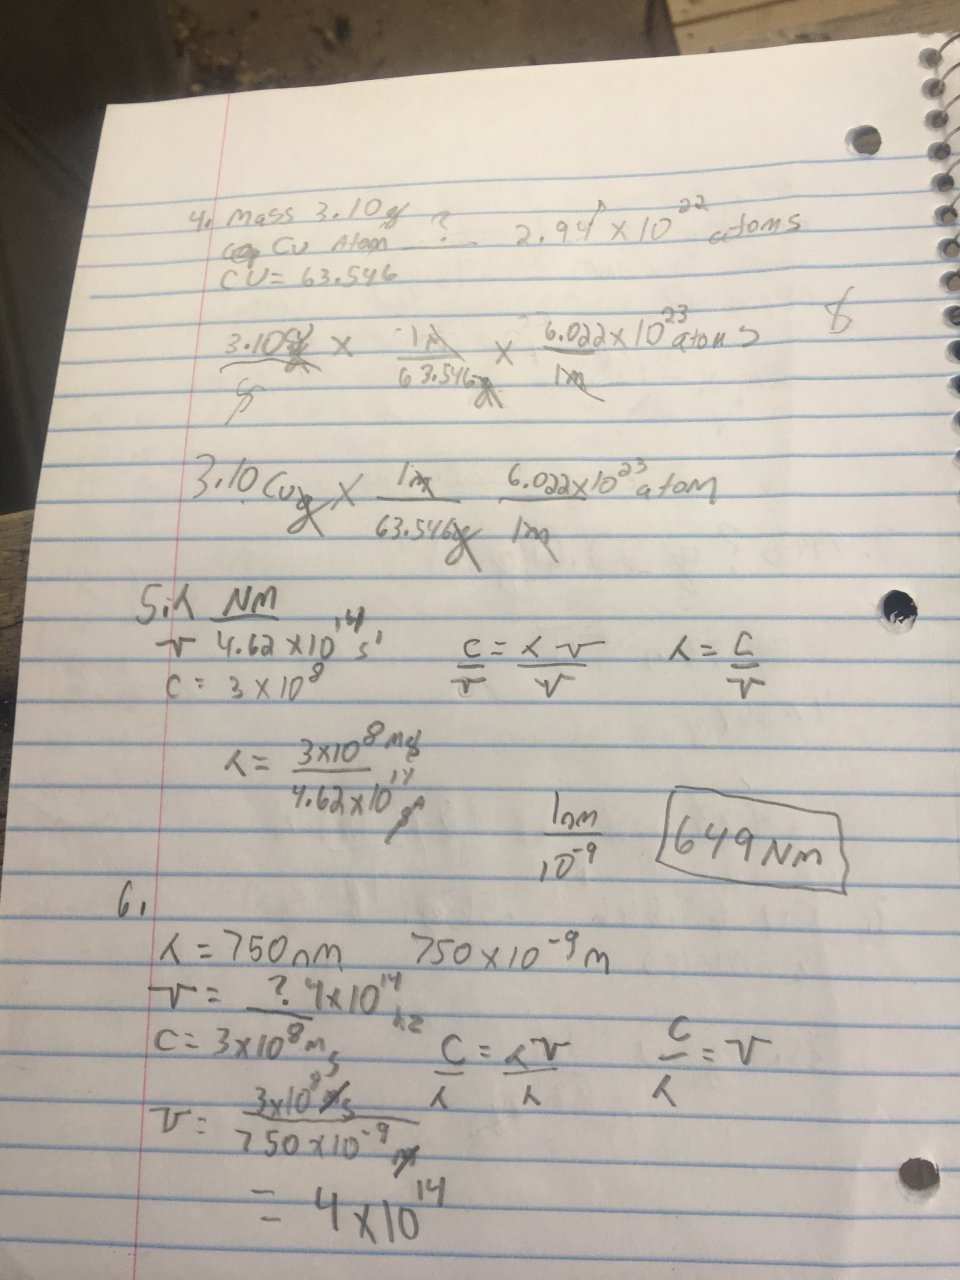 4. Mass 3.10g
Cu Atom ? 2.94 × 10²² atoms
CU = 63.546
3.10g × 1m/63.546g × 6.022×10²³ atoms/1m
3.10 Cu g × 1m/63.546g 6.022×10²³ atom/1m
5. λ NM
v 4.62 ×10¹⁴ s¹
C = 3 ×10⁸
C/v = λv/v λ = C/v
λ = 3×10⁸ m/s / 4.62×10¹⁴
1nm/10⁻⁹ 649 Nm
6.
λ = 750nm 750×10⁻⁹ m
v = ? 4×10¹⁴ hz
C = 3×10⁸ m/s
C/λ = λv/λ C/λ = v
v = 3×10⁸ m/s / 750×10⁻⁹ m
= 4×10¹⁴